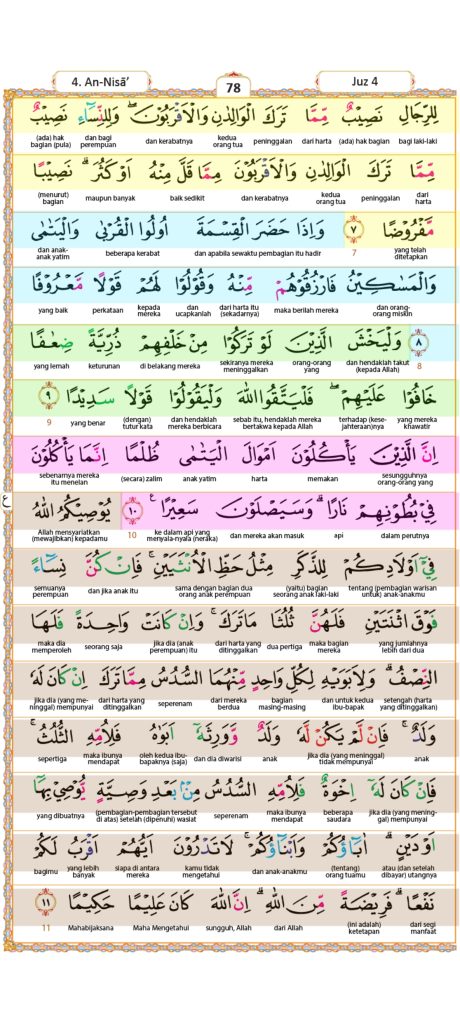 4. An-Nisā’
78
Juz 4
لِلرِّجَالِ نَصِيْبٌ مِّمَّا تَرَكَ الْوَالِدٰنِ وَالْاَقْرَبُوْنَۖ وَلِلنِّسَاۤءِ نَصِيْبٌ
bagi laki-laki (ada) hak bagian dari harta peninggalan kedua orang tua dan kerabatnya dan bagi perempuan (ada) hak bagian (pula)
مِّمَّا تَرَكَ الْوَالِدٰنِ وَالْاَقْرَبُوْنَ مِمَّا قَلَّ مِنْهُ اَوْ كَثُرَ ۗ نَصِيْبًا
dari harta peninggalan kedua orang tua dan kerabatnya baik sedikit maupun banyak (menurut) bagian
مَّفْرُوْضًا ٧ وَاِذَا حَضَرَ الْقِسْمَةَ اُولُوا الْقُرْبٰى وَالْيَتٰمٰى
yang telah ditetapkan 7 dan apabila sewaktu pembagian itu hadir beberapa kerabat dan anak-anak yatim
وَالْمَسٰكِيْنُ فَارْزُقُوْهُمْ مِّنْهُ وَقُوْلُوْا لَهُمْ قَوْلًا مَّعْرُوْفًا
dan orang-orang miskin maka berilah mereka dari harta itu (sekadarnya) dan ucapkanlah kepada mereka perkataan yang baik
٨ وَلْيَخْشَ الَّذِيْنَ لَوْ تَرَكُوْا مِنْ خَلْفِهِمْ ذُرِّيَّةً ضِعٰفًا
8 dan hendaklah takut (kepada Allah) orang-orang yang sekiranya mereka meninggalkan di belakang mereka keturunan yang lemah
خَافُوْا عَلَيْهِمْۖ فَلْيَتَّقُوا اللّٰهَ وَلْيَقُوْلُوْا قَوْلًا سَدِيْدًا ٩
yang mereka khawatir terhadap (kesejahteraan)nya sebab itu, hendaklah mereka bertakwa kepada Allah dan hendaklah mereka berbicara (dengan) tutur kata yang benar 9
اِنَّ الَّذِيْنَ يَأْكُلُوْنَ اَمْوَالَ الْيَتٰمٰى ظُلْمًا اِنَّمَا يَأْكُلُوْنَ
sesungguhnya orang-orang yang memakan harta anak yatim (secara) zalim sebenarnya mereka itu menelan
ع
فِيْ بُطُوْنِهِمْ نَارًا ۗ وَسَيَصْلَوْنَ سَعِيْرًا ࣖ ١٠ يُوْصِيْكُمُ اللّٰهُ
dalam perutnya api dan mereka akan masuk ke dalam api yang menyala-nyala (neraka) 10 Allah mensyariatkan (mewajibkan) kepadamu
فِيْٓ اَوْلَادِكُمْ لِلذَّكَرِ مِثْلُ حَظِّ الْاُنْثَيَيْنِ ۚ فَاِنْ كُنَّ نِسَاۤءً
tentang (pembagian warisan untuk) anak-anakmu (yaitu) bagian seorang anak laki-laki sama dengan bagian dua orang anak perempuan dan jika anak itu semuanya perempuan
فَوْقَ اثْنَتَيْنِ فَلَهُنَّ ثُلُثَا مَا تَرَكَ ۚ وَاِنْ كَانَتْ وَاحِدَةً فَلَهَا
yang jumlahnya lebih dari dua maka bagian mereka dua pertiga dari harta yang ditinggalkan jika dia (anak perempuan) itu seorang saja maka dia memperoleh
النِّصْفُ ۗ وَلِاَبَوَيْهِ لِكُلِّ وَاحِدٍ مِّنْهُمَا السُّدُسُ مِمَّا تَرَكَ اِنْ كَانَ لَهٗ
setengah (harta yang ditinggalkan) dan untuk kedua ibu-bapak bagian masing-masing dari mereka berdua seperenam dari harta yang ditinggalkan jika dia (yang meninggal) mempunyai
وَلَدٌ ۚ فَاِنْ لَّمْ يَكُنْ لَّهٗ وَلَدٌ وَّوَرِثَهٗٓ اَبَوٰهُ فَلِاُمِّهِ الثُّلُثُ ۚ
anak jika dia (yang meninggal) tidak mempunyai anak dan dia diwarisi oleh kedua ibu-bapaknya (saja) maka ibunya mendapat sepertiga
فَاِنْ كَانَ لَهٗٓ اِخْوَةٌ فَلِاُمِّهِ السُّدُسُ مِنْۢ بَعْدِ وَصِيَّةٍ يُّوْصِيْ بِهَآ
jika dia (yang meninggal) mempunyai beberapa saudara maka ibunya mendapat seperenam (pembagian-pembagian tersebut di atas) setelah (dipenuhi) wasiat yang dibuatnya
اَوْ دَيْنٍ ۗ اٰبَاۤؤُكُمْ وَاَبْنَاۤؤُكُمْۚ لَا تَدْرُوْنَ اَيُّهُمْ اَقْرَبُ لَكُمْ
atau (dan setelah dibayar) utangnya (tentang) orang tuamu dan anak-anakmu kamu tidak mengetahui siapa di antara mereka yang lebih banyak bagimu
نَفْعًا ۗ فَرِيْضَةً مِّنَ اللّٰهِ ۗ اِنَّ اللّٰهَ كَانَ عَلِيْمًا حَكِيْمًا ١١
dari segi manfaat (ini adalah) ketetapan dari Allah sungguh, Allah Maha Mengetahui Mahabijaksana 11